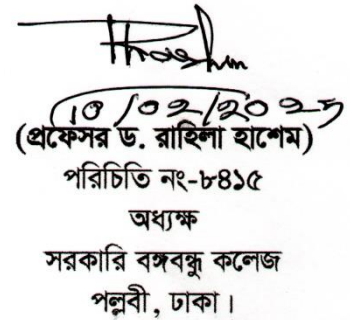 10/02/2025
(প্রফেসর ড. রাহিলা হাশেম)
পরিচিতি নং-৮৪১৫
অধ্যক্ষ
সরকারি বঙ্গবন্ধু কলেজ
পল্লবী, ঢাকা।